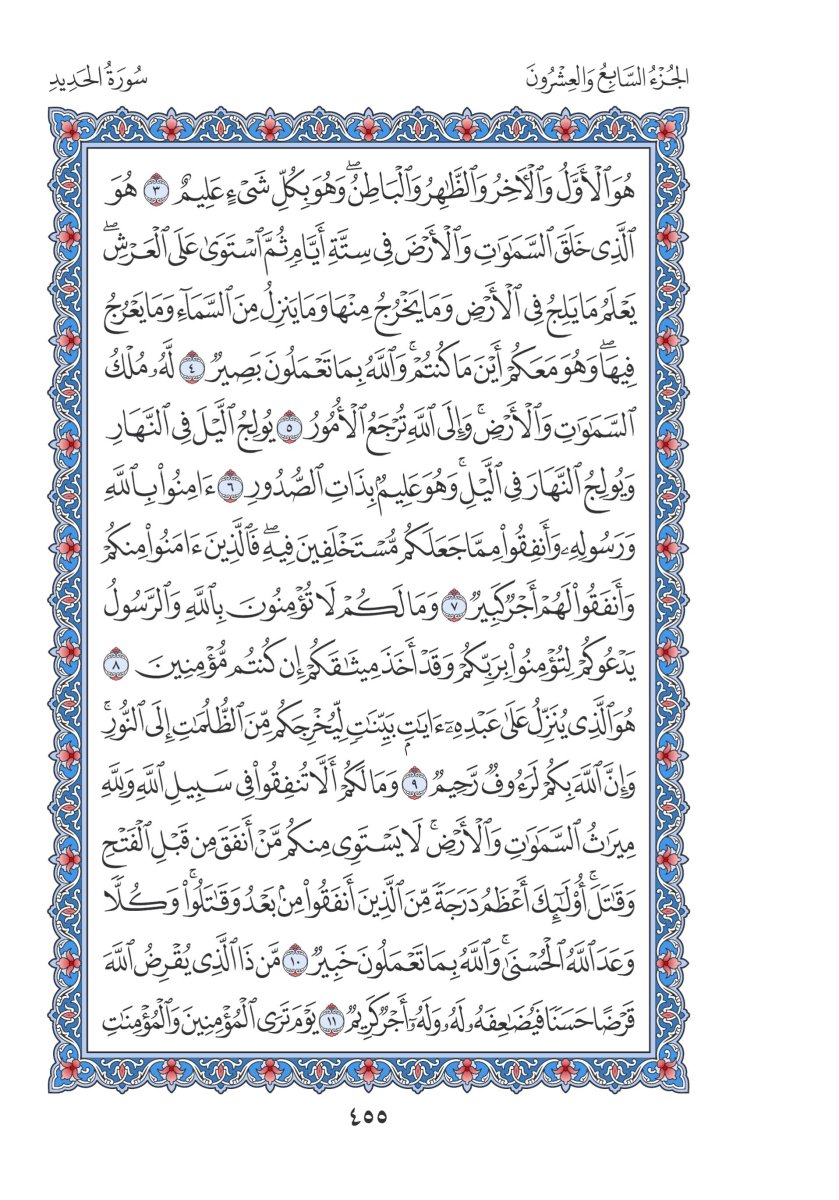 الجُزْءُ السَّابِعُ وَالعِشْرُونَ
سُورَةُ الحَدِيدِ
هُوَ ٱلْأَوَّلُ وَٱلْأٓخِرُ وَٱلظَّٰهِرُ وَٱلْبَاطِنُۖ وَهُوَ بِكُلِّ شَىْءٍ عَلِيمٌ ٣ هُوَ
ٱلَّذِى خَلَقَ ٱلسَّمَٰوَٰتِ وَٱلْأَرْضَ فِى سِتَّةِ أَيَّامٍ ثُمَّ ٱسْتَوَىٰ عَلَى ٱلْعَرْشِۖ
يَعْلَمُ مَا يَلِجُ فِى ٱلْأَرْضِ وَمَا يَخْرُجُ مِنْهَا وَمَا يَنزِلُ مِنَ ٱلسَّمَآءِ وَمَا يَعْرُجُ
فِيهَاۖ وَهُوَ مَعَكُمْ أَيْنَ مَا كُنتُمْۚ وَٱللَّهُ بِمَا تَعْمَلُونَ بَصِيرٌ ٤ لَّهُۥ مُلْكُ
ٱلسَّمَٰوَٰتِ وَٱلْأَرْضِۚ وَإِلَى ٱللَّهِ تُرْجَعُ ٱلْأُمُورُ ٥ يُولِجُ ٱلَّيْلَ فِى ٱلنَّهَارِ
وَيُولِجُ ٱلنَّهَارَ فِى ٱلَّيْلِۚ وَهُوَ عَلِيمٌۢ بِذَاتِ ٱلصُّدُورِ ٦ ءَامِنُوا۟ بِٱللَّهِ
وَرَسُولِهِۦ وَأَنفِقُوا۟ مِمَّا جَعَلَكُم مُّسْتَخْلَفِينَ فِيهِۖ فَٱلَّذِينَ ءَامَنُوا۟ مِنكُمْ
وَأَنفَقُوا۟ لَهُمْ أَجْرٌ كَبِيرٌ ٧ وَمَا لَكُمْ لَا تُؤْمِنُونَ بِٱللَّهِ وَٱلرَّسُولُ
يَدْعُوكُمْ لِتُؤْمِنُوا۟ بِرَبِّكُمْ وَقَدْ أَخَذَ مِيثَٰقَكُمْ إِن كُنتُم مُّؤْمِنِينَ ٨
هُوَ ٱلَّذِى يُنَزِّلُ عَلَىٰ عَبْدِهِۦٓ ءَايَٰتٍۭ بَيِّنَٰتٍ لِّيُخْرِجَكُم مِّنَ ٱلظُّلُمَٰتِ إِلَى ٱلنُّورِۚ
وَإِنَّ ٱللَّهَ بِكُمْ لَرَءُوفٌ رَّحِيمٌ ٩ وَمَا لَكُمْ أَلَّا تُنفِقُوا۟ فِى سَبِيلِ ٱللَّهِ وَلِلَّهِ
مِيرَٰثُ ٱلسَّمَٰوَٰتِ وَٱلْأَرْضِۚ لَا يَسْتَوِى مِنكُم مَّنْ أَنفَقَ مِن قَبْلِ ٱلْفَتْحِ
وَقَٰتَلَۚ أُو۟لَٰٓئِكَ أَعْظَمُ دَرَجَةً مِّنَ ٱلَّذِينَ أَنفَقُوا۟ مِنۢ بَعْدُ وَقَٰتَلُوا۟ۚ وَكُلًّا
وَعَدَ ٱللَّهُ ٱلْحُسْنَىٰۚ وَٱللَّهُ بِمَا تَعْمَلُونَ خَبِيرٌ ١٠ مَّن ذَا ٱلَّذِى يُقْرِضُ ٱللَّهَ
قَرْضًا حَسَنًا فَيُضَٰعِفَهُۥ لَهُۥ وَلَهُۥٓ أَجْرٌ كَرِيمٌ ١١ يَوْمَ تَرَى ٱلْمُؤْمِنِينَ وَٱلْمُؤْمِنَٰتِ
٤٥٥